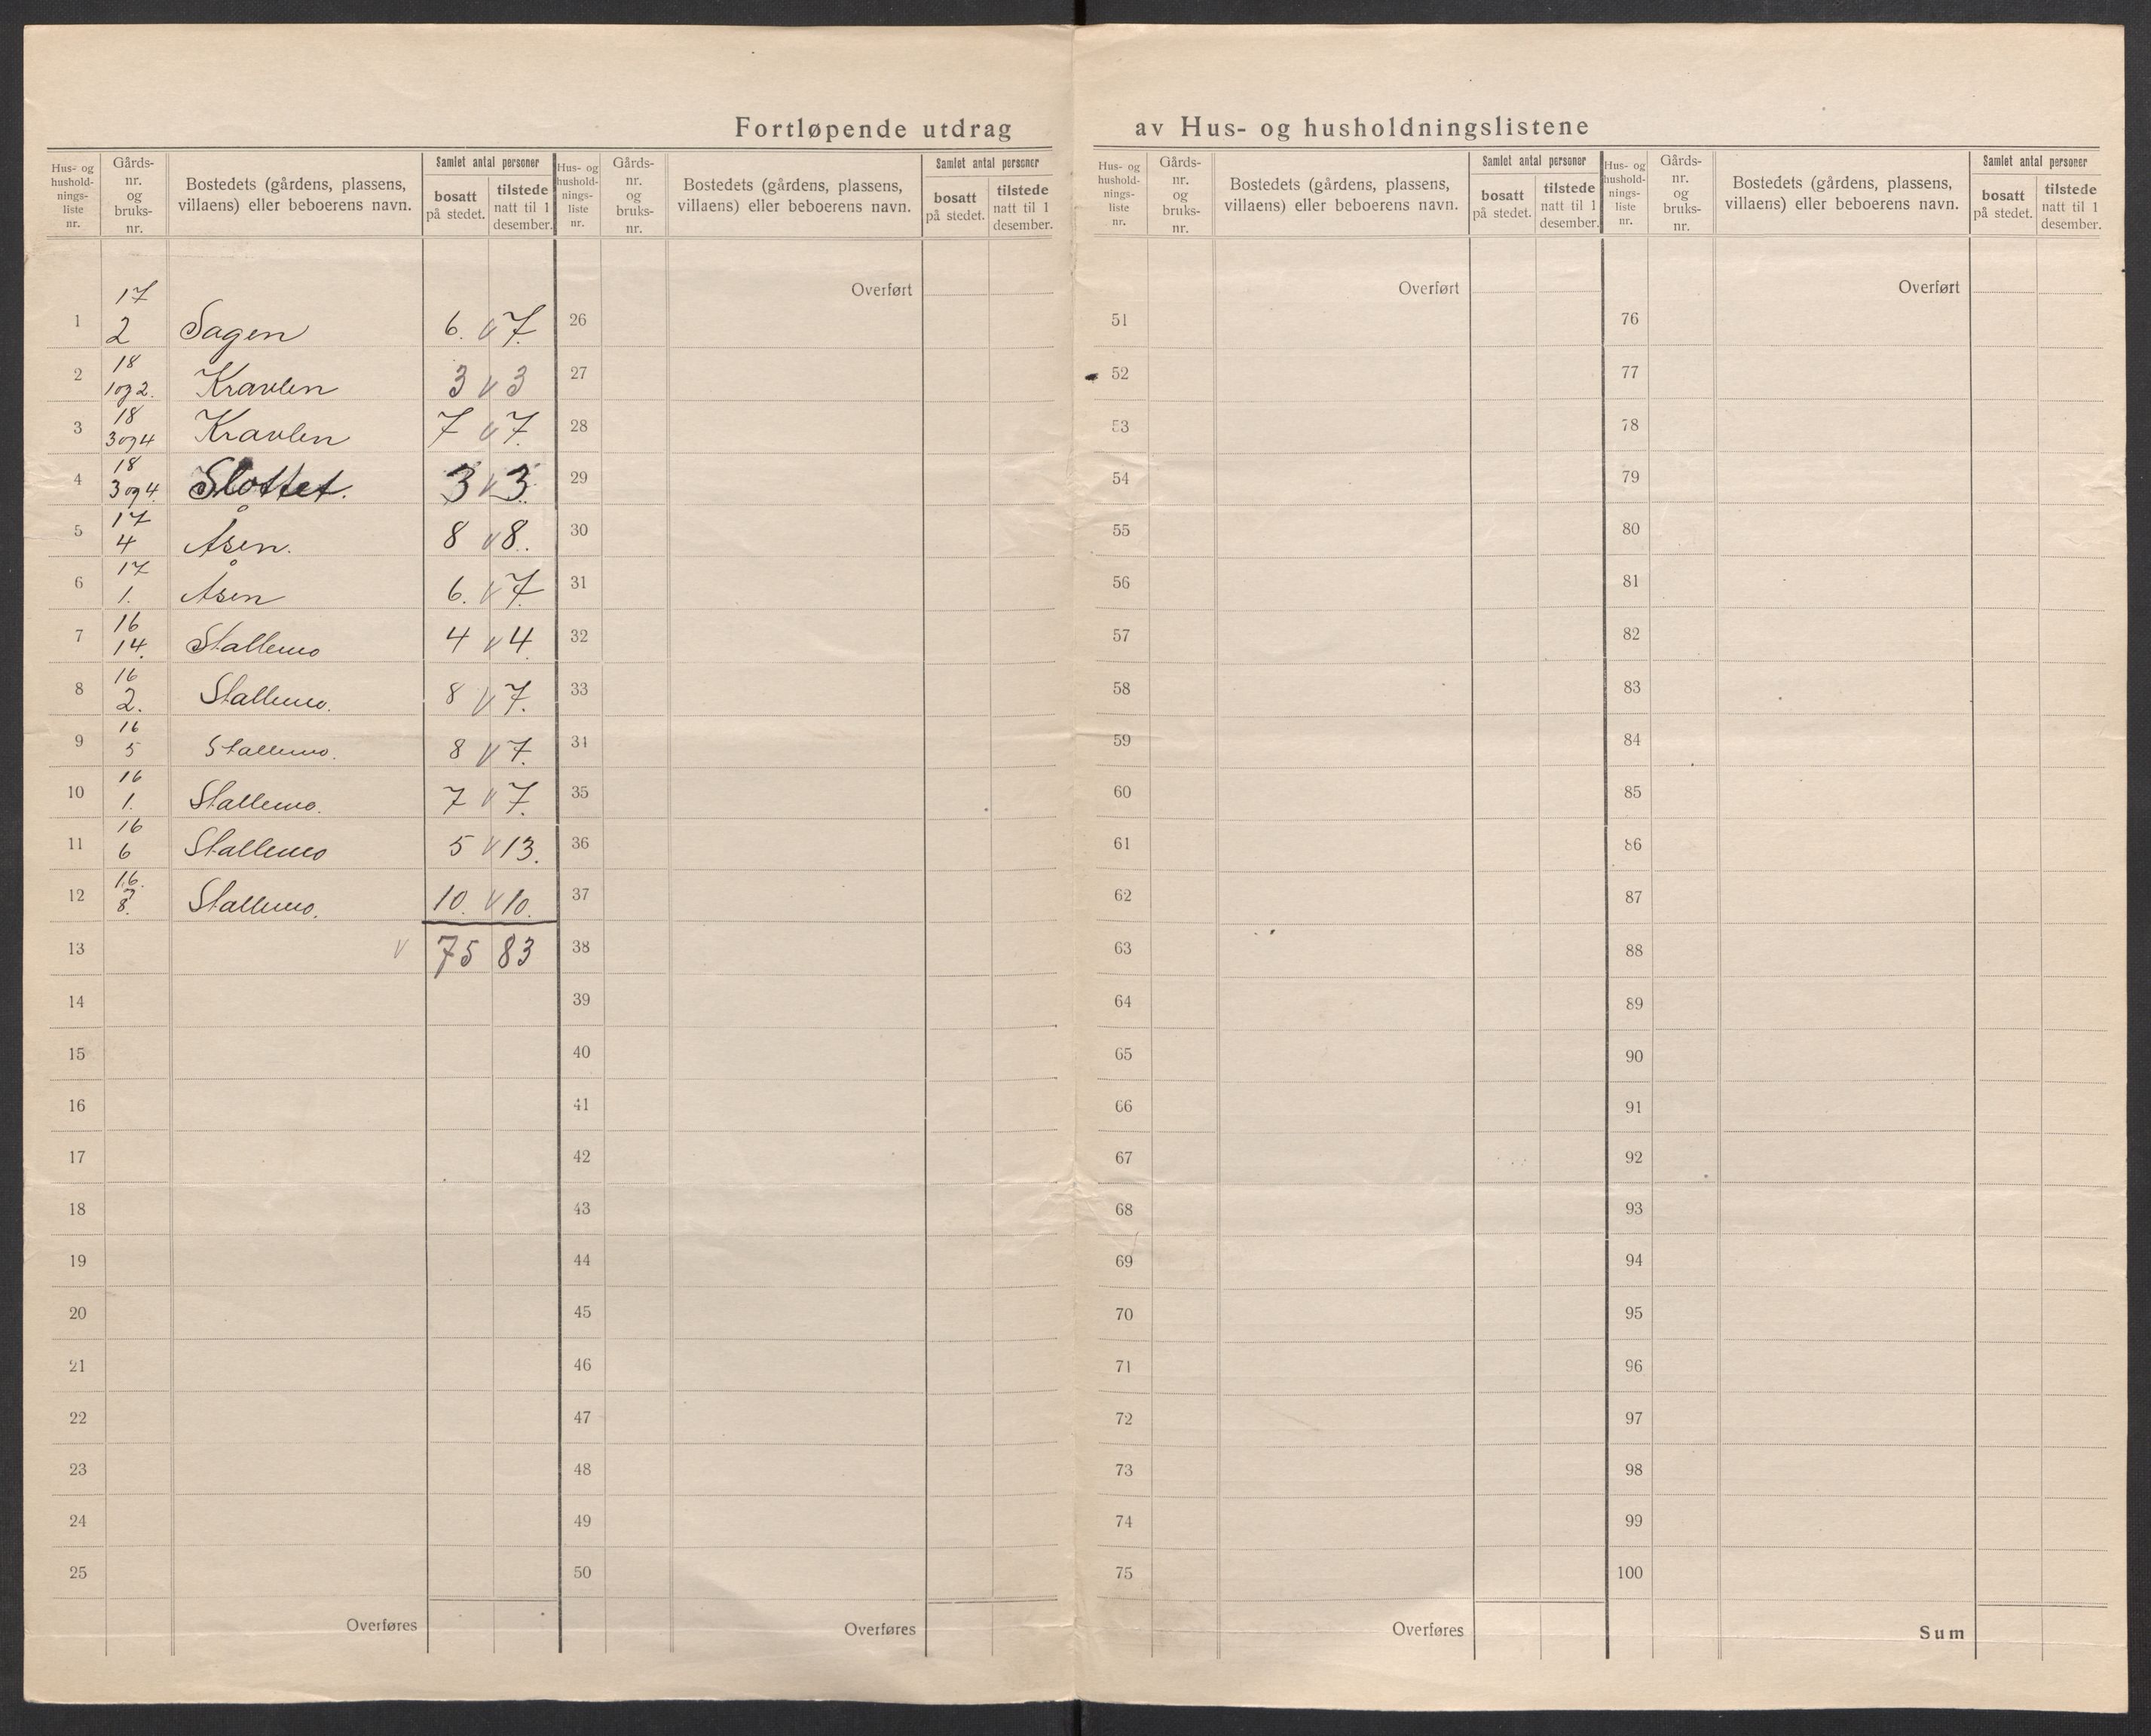 Fortløpende utdrag av Hus- og husholdningslistene
Hus- og hushold-nings-liste nr. | Gårds-nr. og bruks-nr. | Bostedets (gårdens, plassens, villaens) eller beboerens navn. | Samlet antal personer | bosatt på stedet. | tilstede natt til 1 desember.
Hus- og hushold-nings-liste nr. | Gårds-nr. og bruks-nr. | Bostedets (gårdens, plassens, villaens) eller beboerens navn. | Samlet antal personer | bosatt på stedet. | tilstede natt til 1 desember.
Hus- og hushold-nings-liste nr. | Gårds-nr. og bruks-nr. | Bostedets (gårdens, plassens, villaens) eller beboerens navn. | Samlet antal personer | bosatt på stedet. | tilstede natt til 1 desember.
Hus- og hushold-nings-liste nr. | Gårds-nr. og bruks-nr. | Bostedets (gårdens, plassens, villaens) eller beboerens navn. | Samlet antal personer | bosatt på stedet. | tilstede natt til 1 desember.
1 | 17 2 | Sagen | 6. v 7.
2 | 18 1 og 2. | Kravlen | 3 v 3
3 | 18 3 og 4 | Kravlen | 7 v 7.
4 | 18 3 og 4. | Slottet. | 3 v 3.
5 | 17 4 | Åsen. | 8 v 8.
6 | 17 1. | Åsen | 6. v 7.
7 | 16 14. | Stallemo | 4 v 4.
8 | 16 2. | Stallemo. | 8 v 7.
9 | 16 5 | Stallemo. | 8 v 7.
10 | 16 1. | Stallemo. | 7 v 7.
11 | 16 6 | Stallemo | 5 v 13.
12 | 16. 8. | Stallemo. | 10. v 10.
13 | v | 75 | 83
14
15
16
17
18
19
20
21
22
23
24
25
Overføres
Overført
26
27
28
29
30
31
32
33
34
35
36
37
38
39
40
41
42
43
44
45
46
47
48
49
50
Overføres
Overført
51
52
53
54
55
56
57
58
59
60
61
62
63
64
65
66
67
68
69
70
71
72
73
74
75
Overføres
Overført
76
77
78
79
80
81
82
83
84
85
86
87
88
89
90
91
92
93
94
95
96
97
98
99
100
Sum